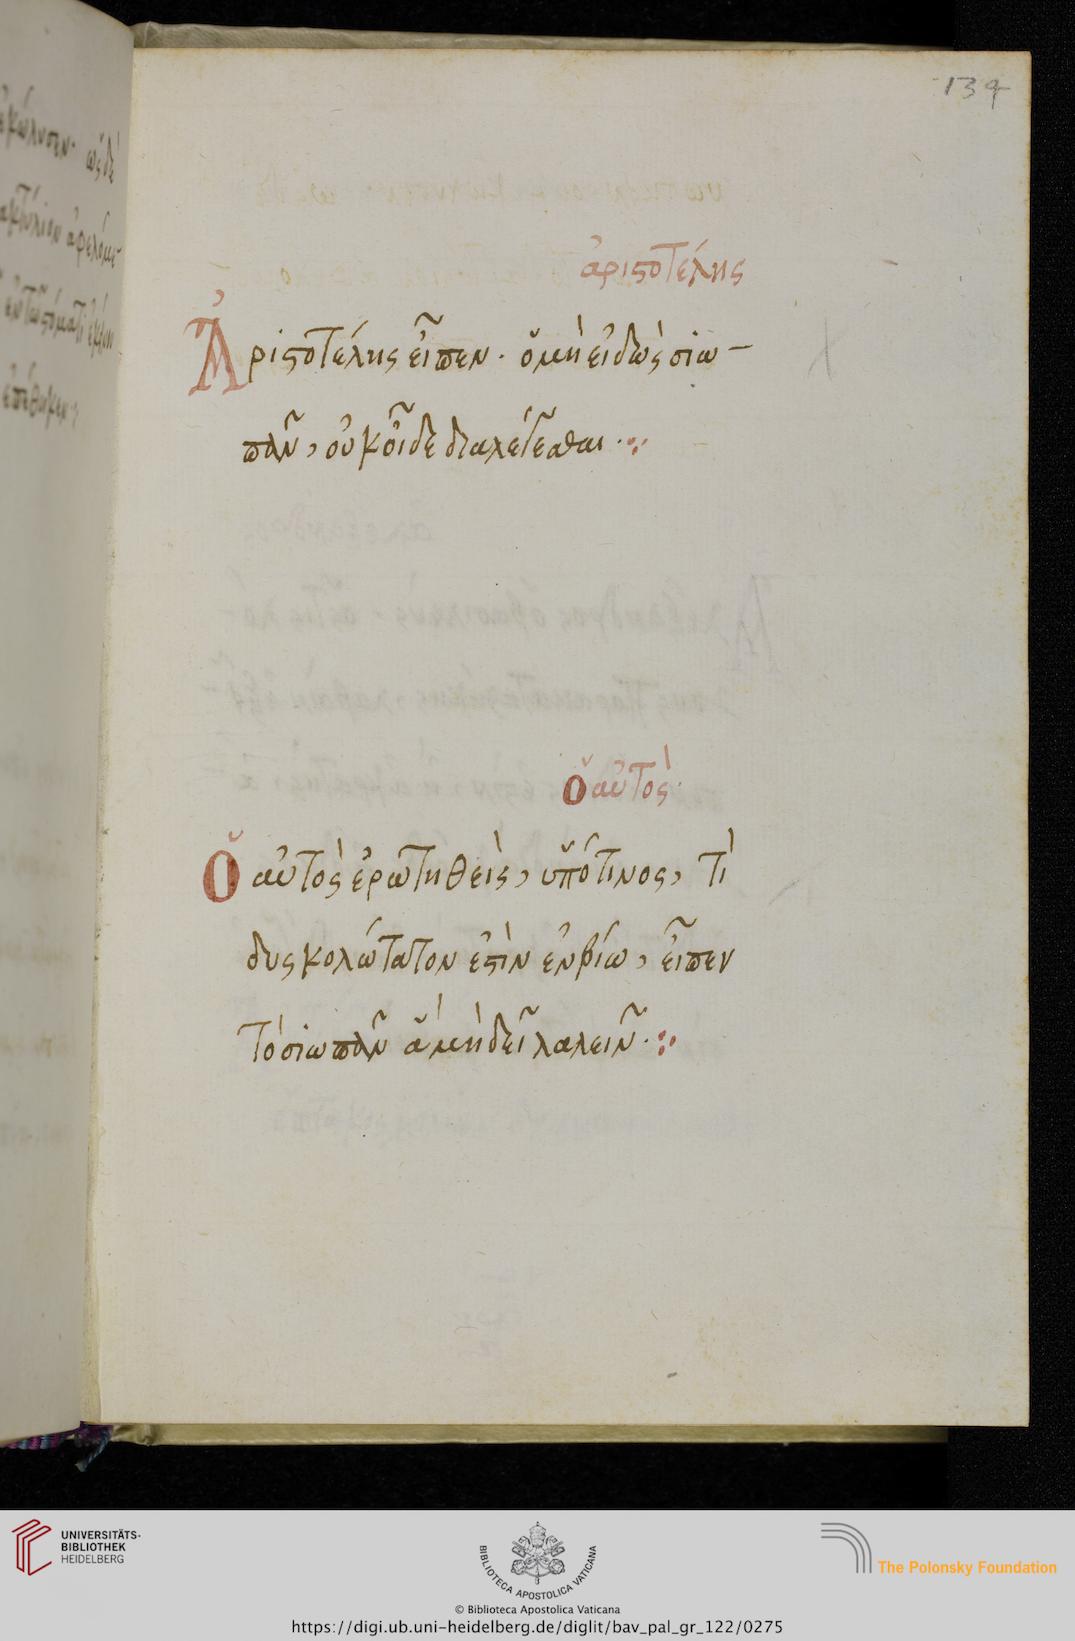 134
ἀριστοτέλης
Ἀριστοτέλης εἶπεν· ὁ μὴ εἰδὼς σιω-
πᾶν, οὐκ οἶδε διαλέγεσθαι·
ὁ αὐτὸς
Ὁ αὐτὸς ἐρωτηθεὶς, ὑπό τινος, τί
δυσκολώτατον ἐστὶν ἐν βίω, εἶπεν
τὸ σιωπᾶν ἃ μὴ δεῖ λαλεῖν·
UNIVERSITÄTS-
BIBLIOTHEK
HEIDELBERG
BIBLIOTECA APOSTOLICA VATICANA
The Polonsky Foundation
© Biblioteca Apostolica Vaticana
https://digi.ub.uni-heidelberg.de/diglit/bav_pal_gr_122/0275